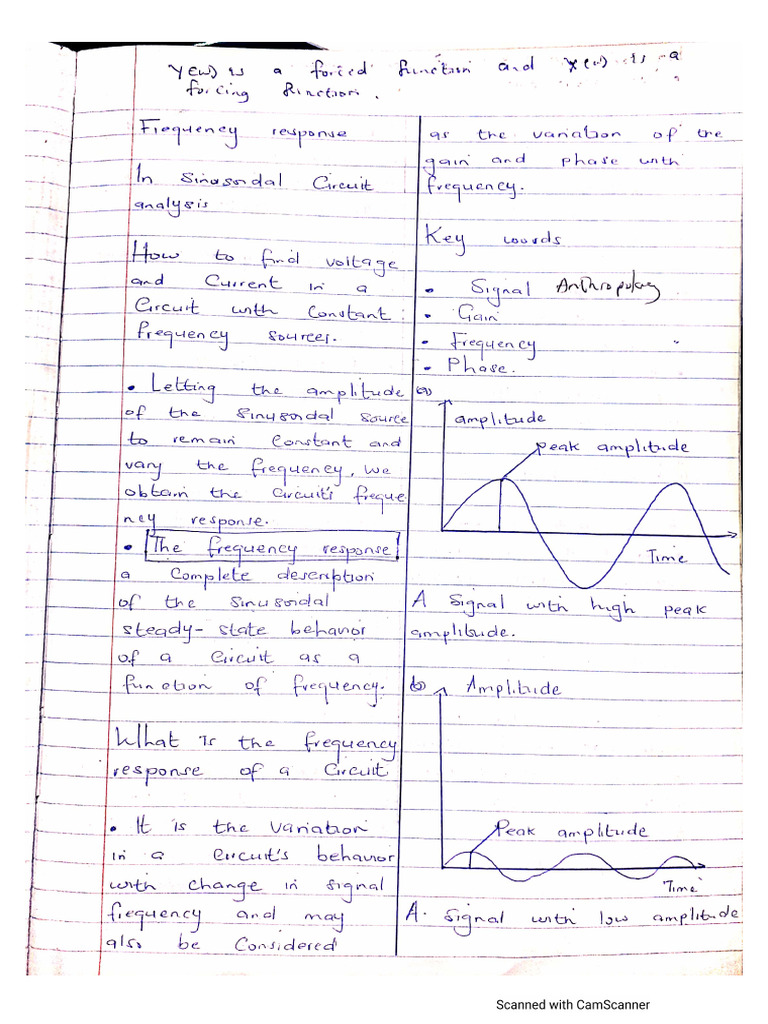 Y(ω) is a forced function and X(ω) is a
forcing function.
Frequency response
In Sinusoidal Circuit
analysis
How to find voltage
and Current in a
Circuit with Constant
frequency sources.
• Letting the amplitude
of the sinusoidal source
to remain Constant and
vary the frequency, we
obtain the circuit's freque
ncy response.
• The frequency response
a Complete description
of the sinusoidal
steady-state behavior
of a Circuit as a
function of frequency.
What is the frequency
response of a Circuit
• It is the variation
in a circuit's behavior
with change in signal
frequency and may
also be Considered
as the variation of the
gain and phase with
frequency.
Key words
• Signal Anthropology
• Gain
• Frequency
• Phase.
(a)
amplitude
peak amplitude
Time
A signal with high peak
amplitude.
b) Amplitude
Peak amplitude
Time
A. signal with low amplitude
Scanned with CamScanner